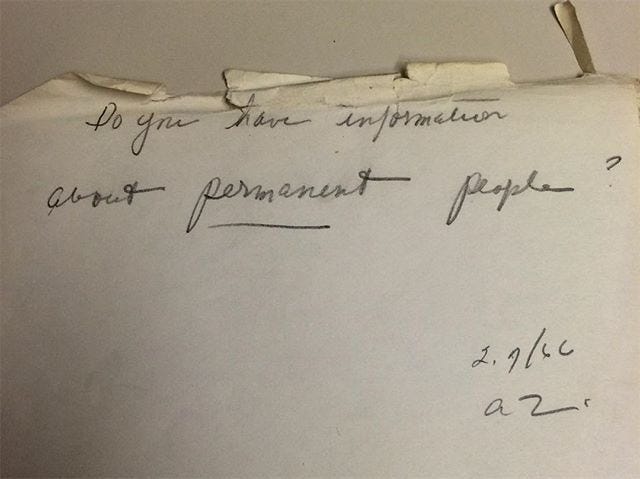 Do you have information
about permanent people?
2.7/66
a Z.